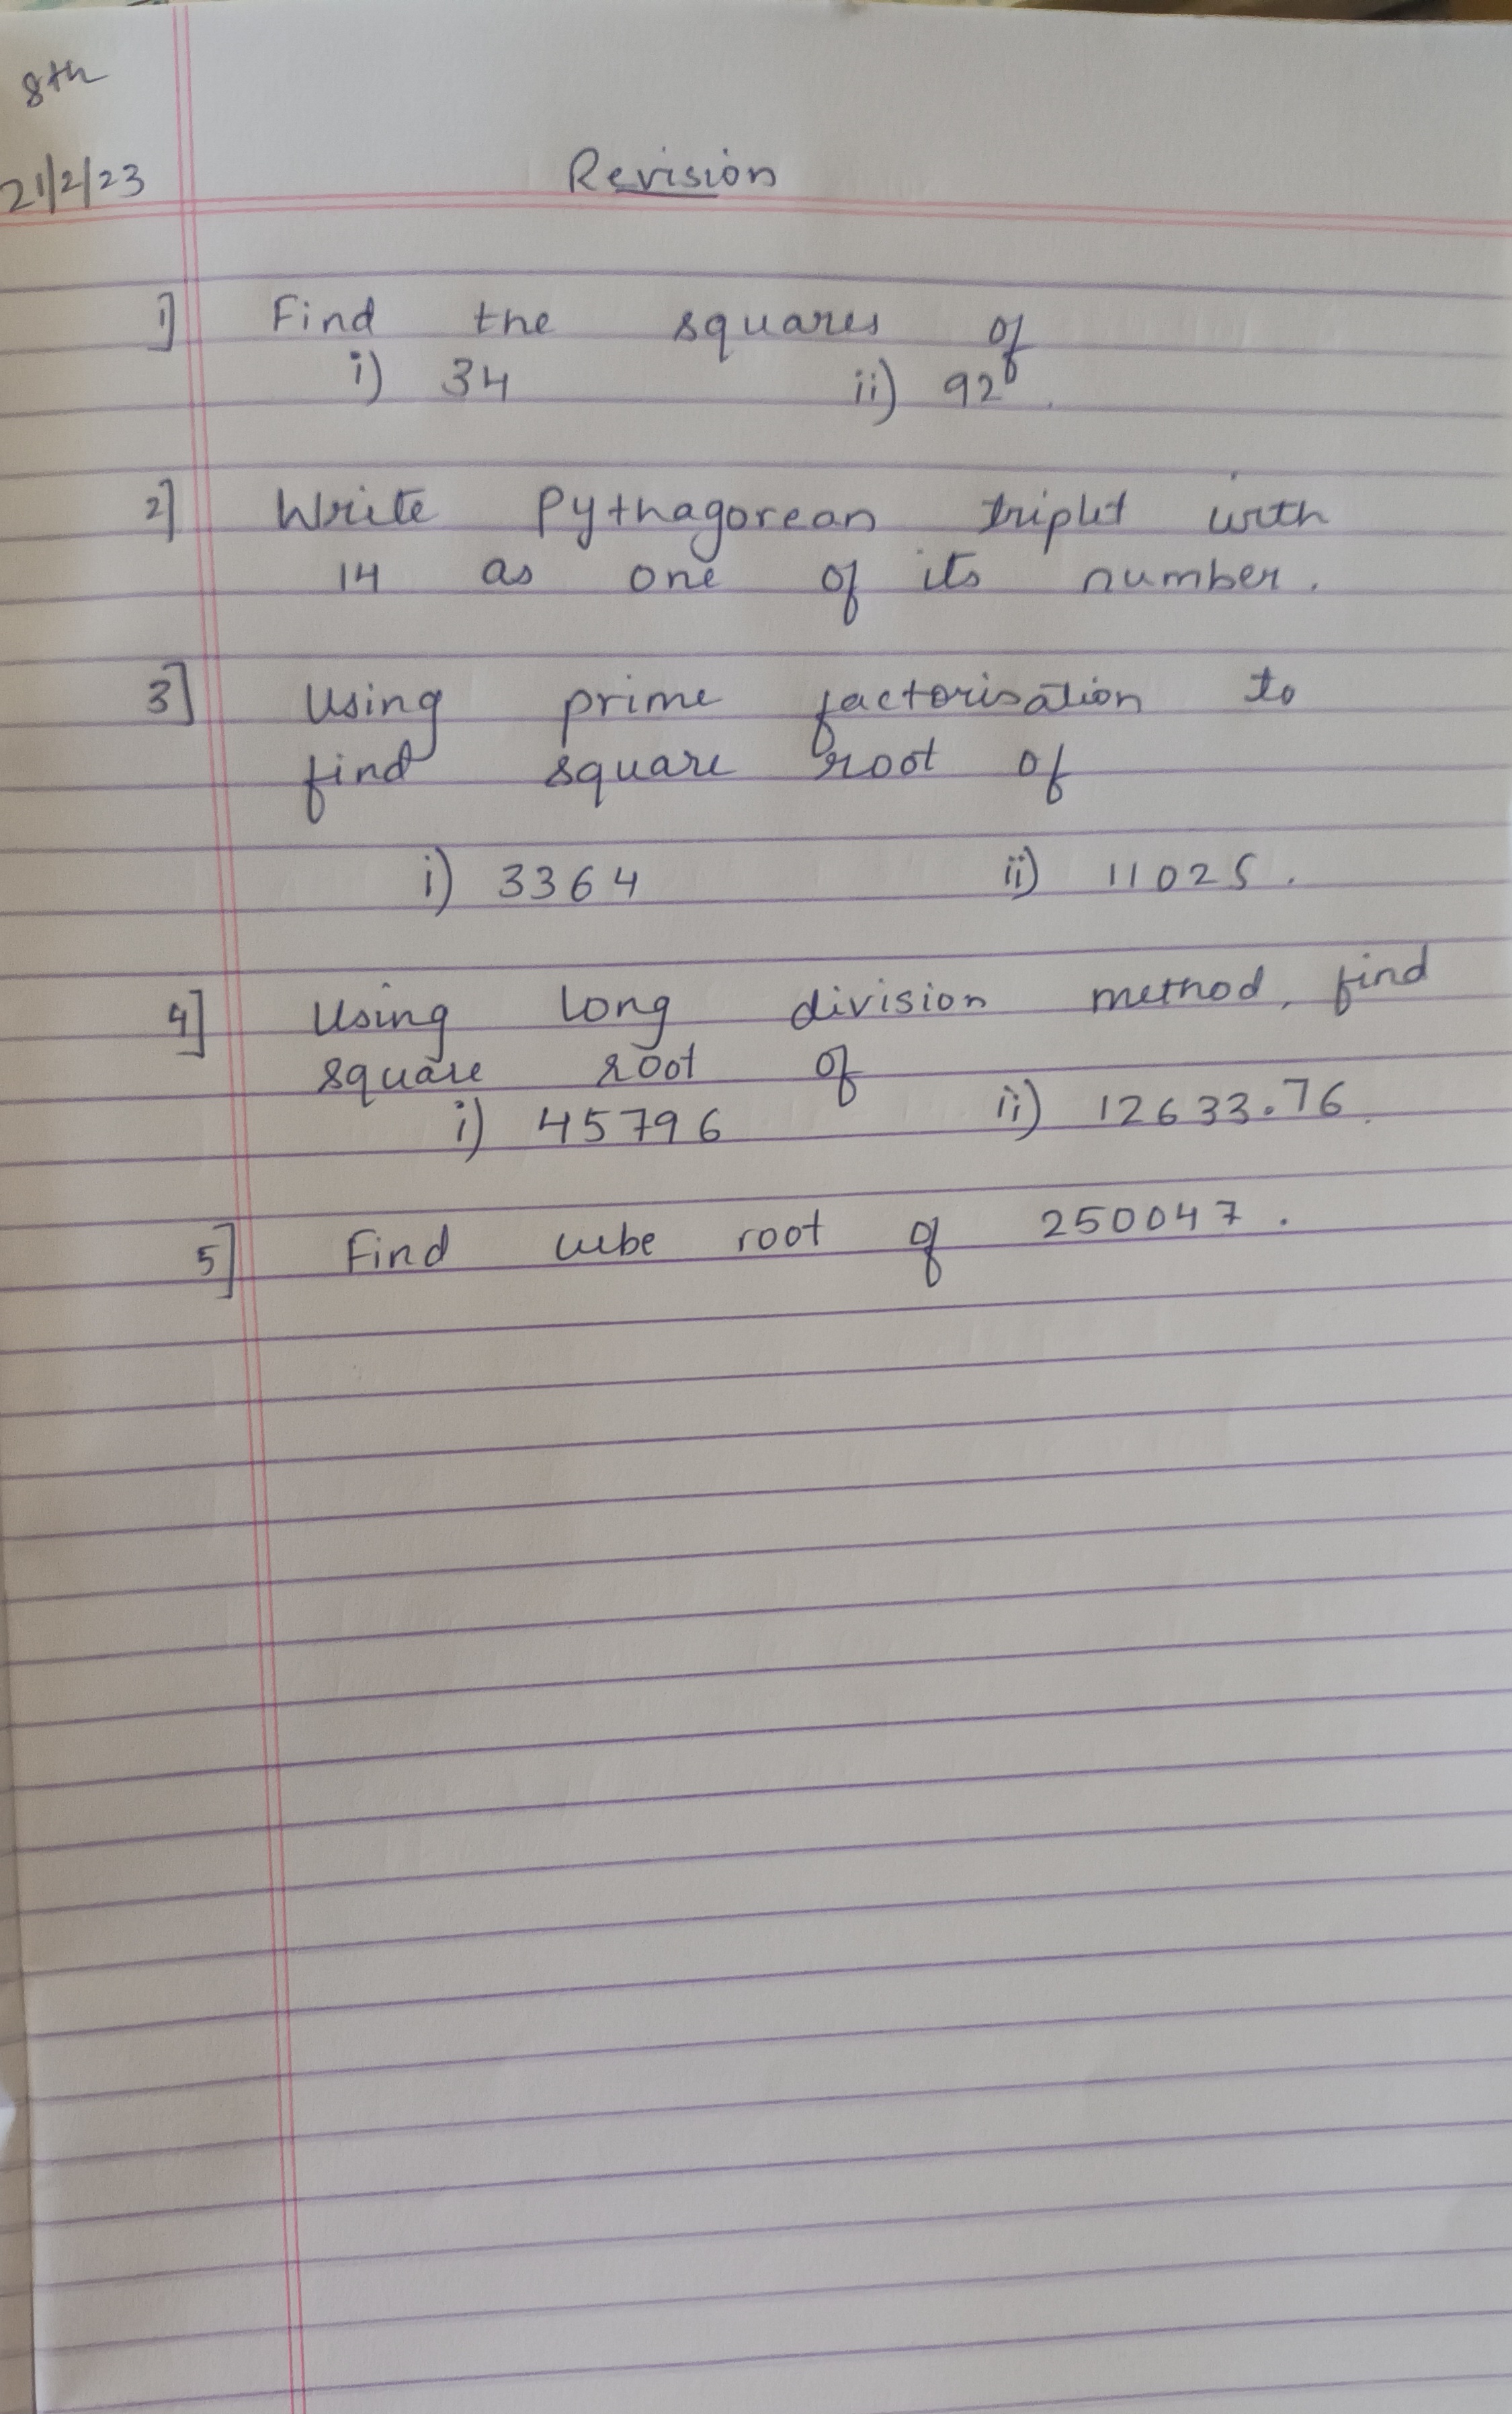 8th
21/2/23
Revision
1] Find the squares of
i) 34 ii) 92.
2] Write Pythagorean triplet with
14 as one of its number.
3] Using prime factorisation to
find square root of
i) 3364 ii) 11025.
4] Using long division method, find
square root of
i) 45796 ii) 12633.76.
5] Find cube root of 250047.